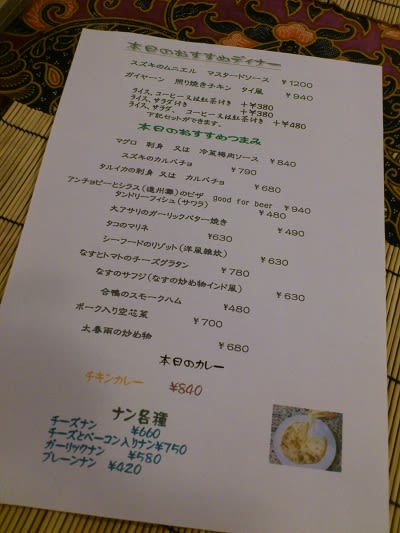 本日のおすすめディナー
スズキのムニエル マスタードソース ￥1200
ガイヤーン 照り焼きチキン タイ風 ￥940
ライス、コーヒー又は紅茶付き ＋￥380
ライス、サラダ付き ＋￥380
ライス、サラダ、 コーヒー又は紅茶付き ＋￥480
下記セットができます。
本日のおすすめつまみ
マグロ 刺身 又は 冷菜梅肉ソース ￥840
スズキのカルパチョ ￥790
タルイカの刺身 又は カルパチョ ￥680
アンチョビーとシラス(遠州灘)のピザ good for beer ￥940
タンドリーフィシュ(サワラ) ￥480
大アサリのガーリックバター焼き ￥490
タコのマリネ ￥630
シーフードのリゾット(洋風雑炊) ￥630
なすとトマトのチーズグラタン ￥780
なすのサブジ(なすの炒め物インド風) ￥630
合鴨のスモークハム ￥480
ポーク入り空芯菜 ￥700
大春雨の炒め物 ￥680
本日のカレー
チキンカレー ￥840
ナン各種
チーズナン ￥660
チーズとベーコン入りナン￥750
ガーリックナン ￥580
プレーンナン ￥420